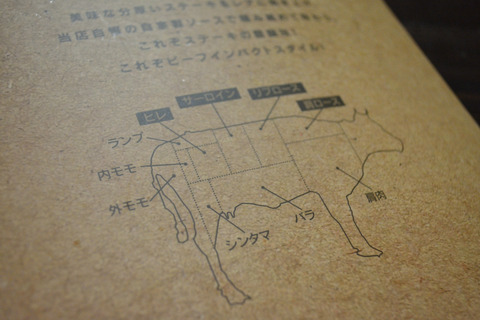 美味な分厚いステーキを
当店自慢の自家製ソースで
これぞステーキの醍醐味!
これぞビーフインパクトスタイル!
ヒレ
サーロイン
リブロース
肩ロース
ランプ
内モモ
外モモ
シンタマ
バラ
肩肉